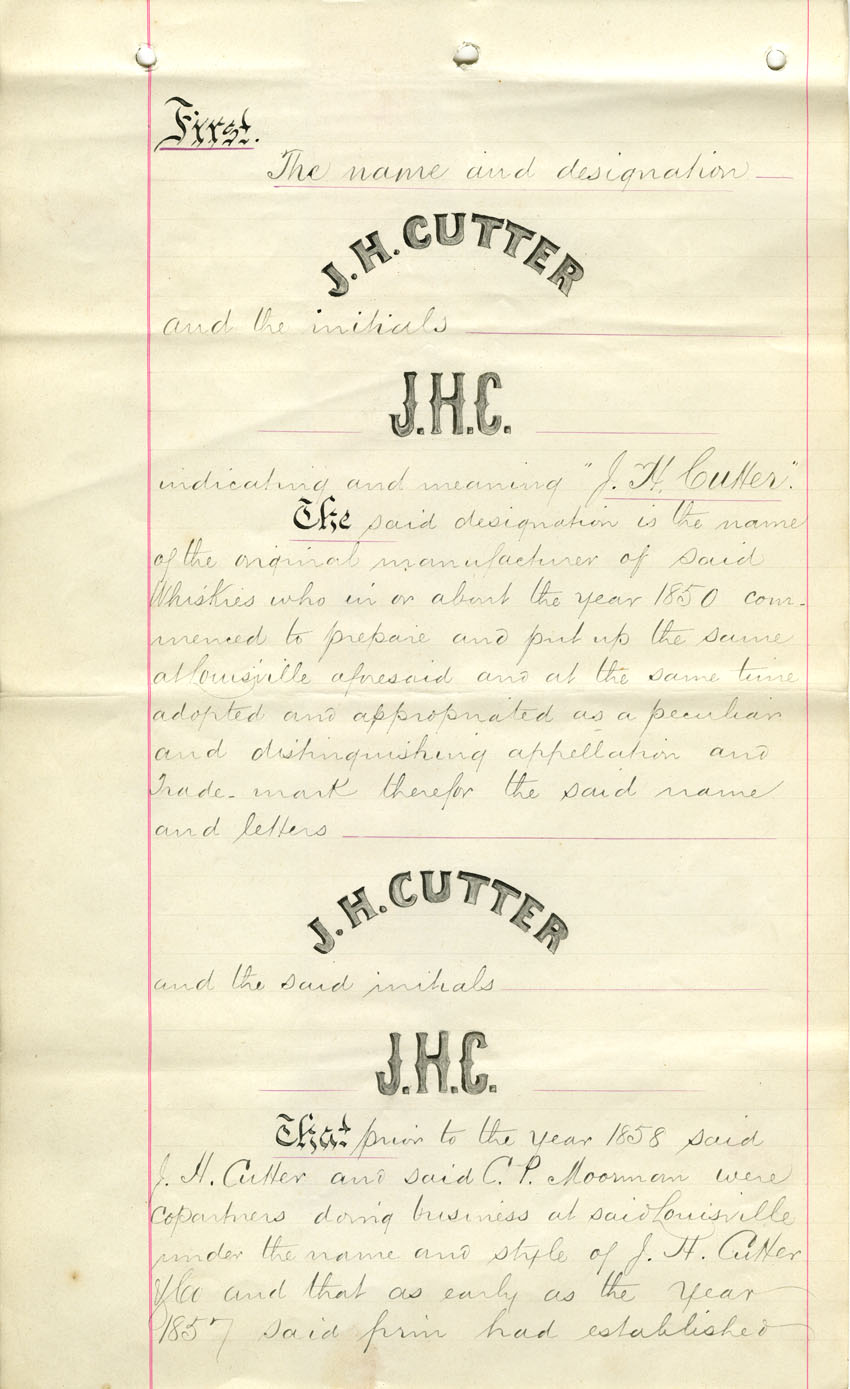 First.
The name and designation
J. H. CUTTER
and the initials
J.H.C.
indicating and meaning "J. H. Cutter".
The said designation is the name
of the original manufacturer of said
Whiskies who in or about the year 1850 com-
menced to prepare and put up the same
at Louisville aforesaid and at the same time
adopted and appropriated as a peculiar
and distinguishing appellation and
Trade-mark therefor the said name
and letters
J. H. CUTTER
and the said initials
J.H.C.
That prior to the year 1858 said
J. H. Cutter and said C. P. Moorman were
copartners doing business at said Louisville
under the name and style of J. H. Cutter
& Co and that as early as the year
1857 said firm had established